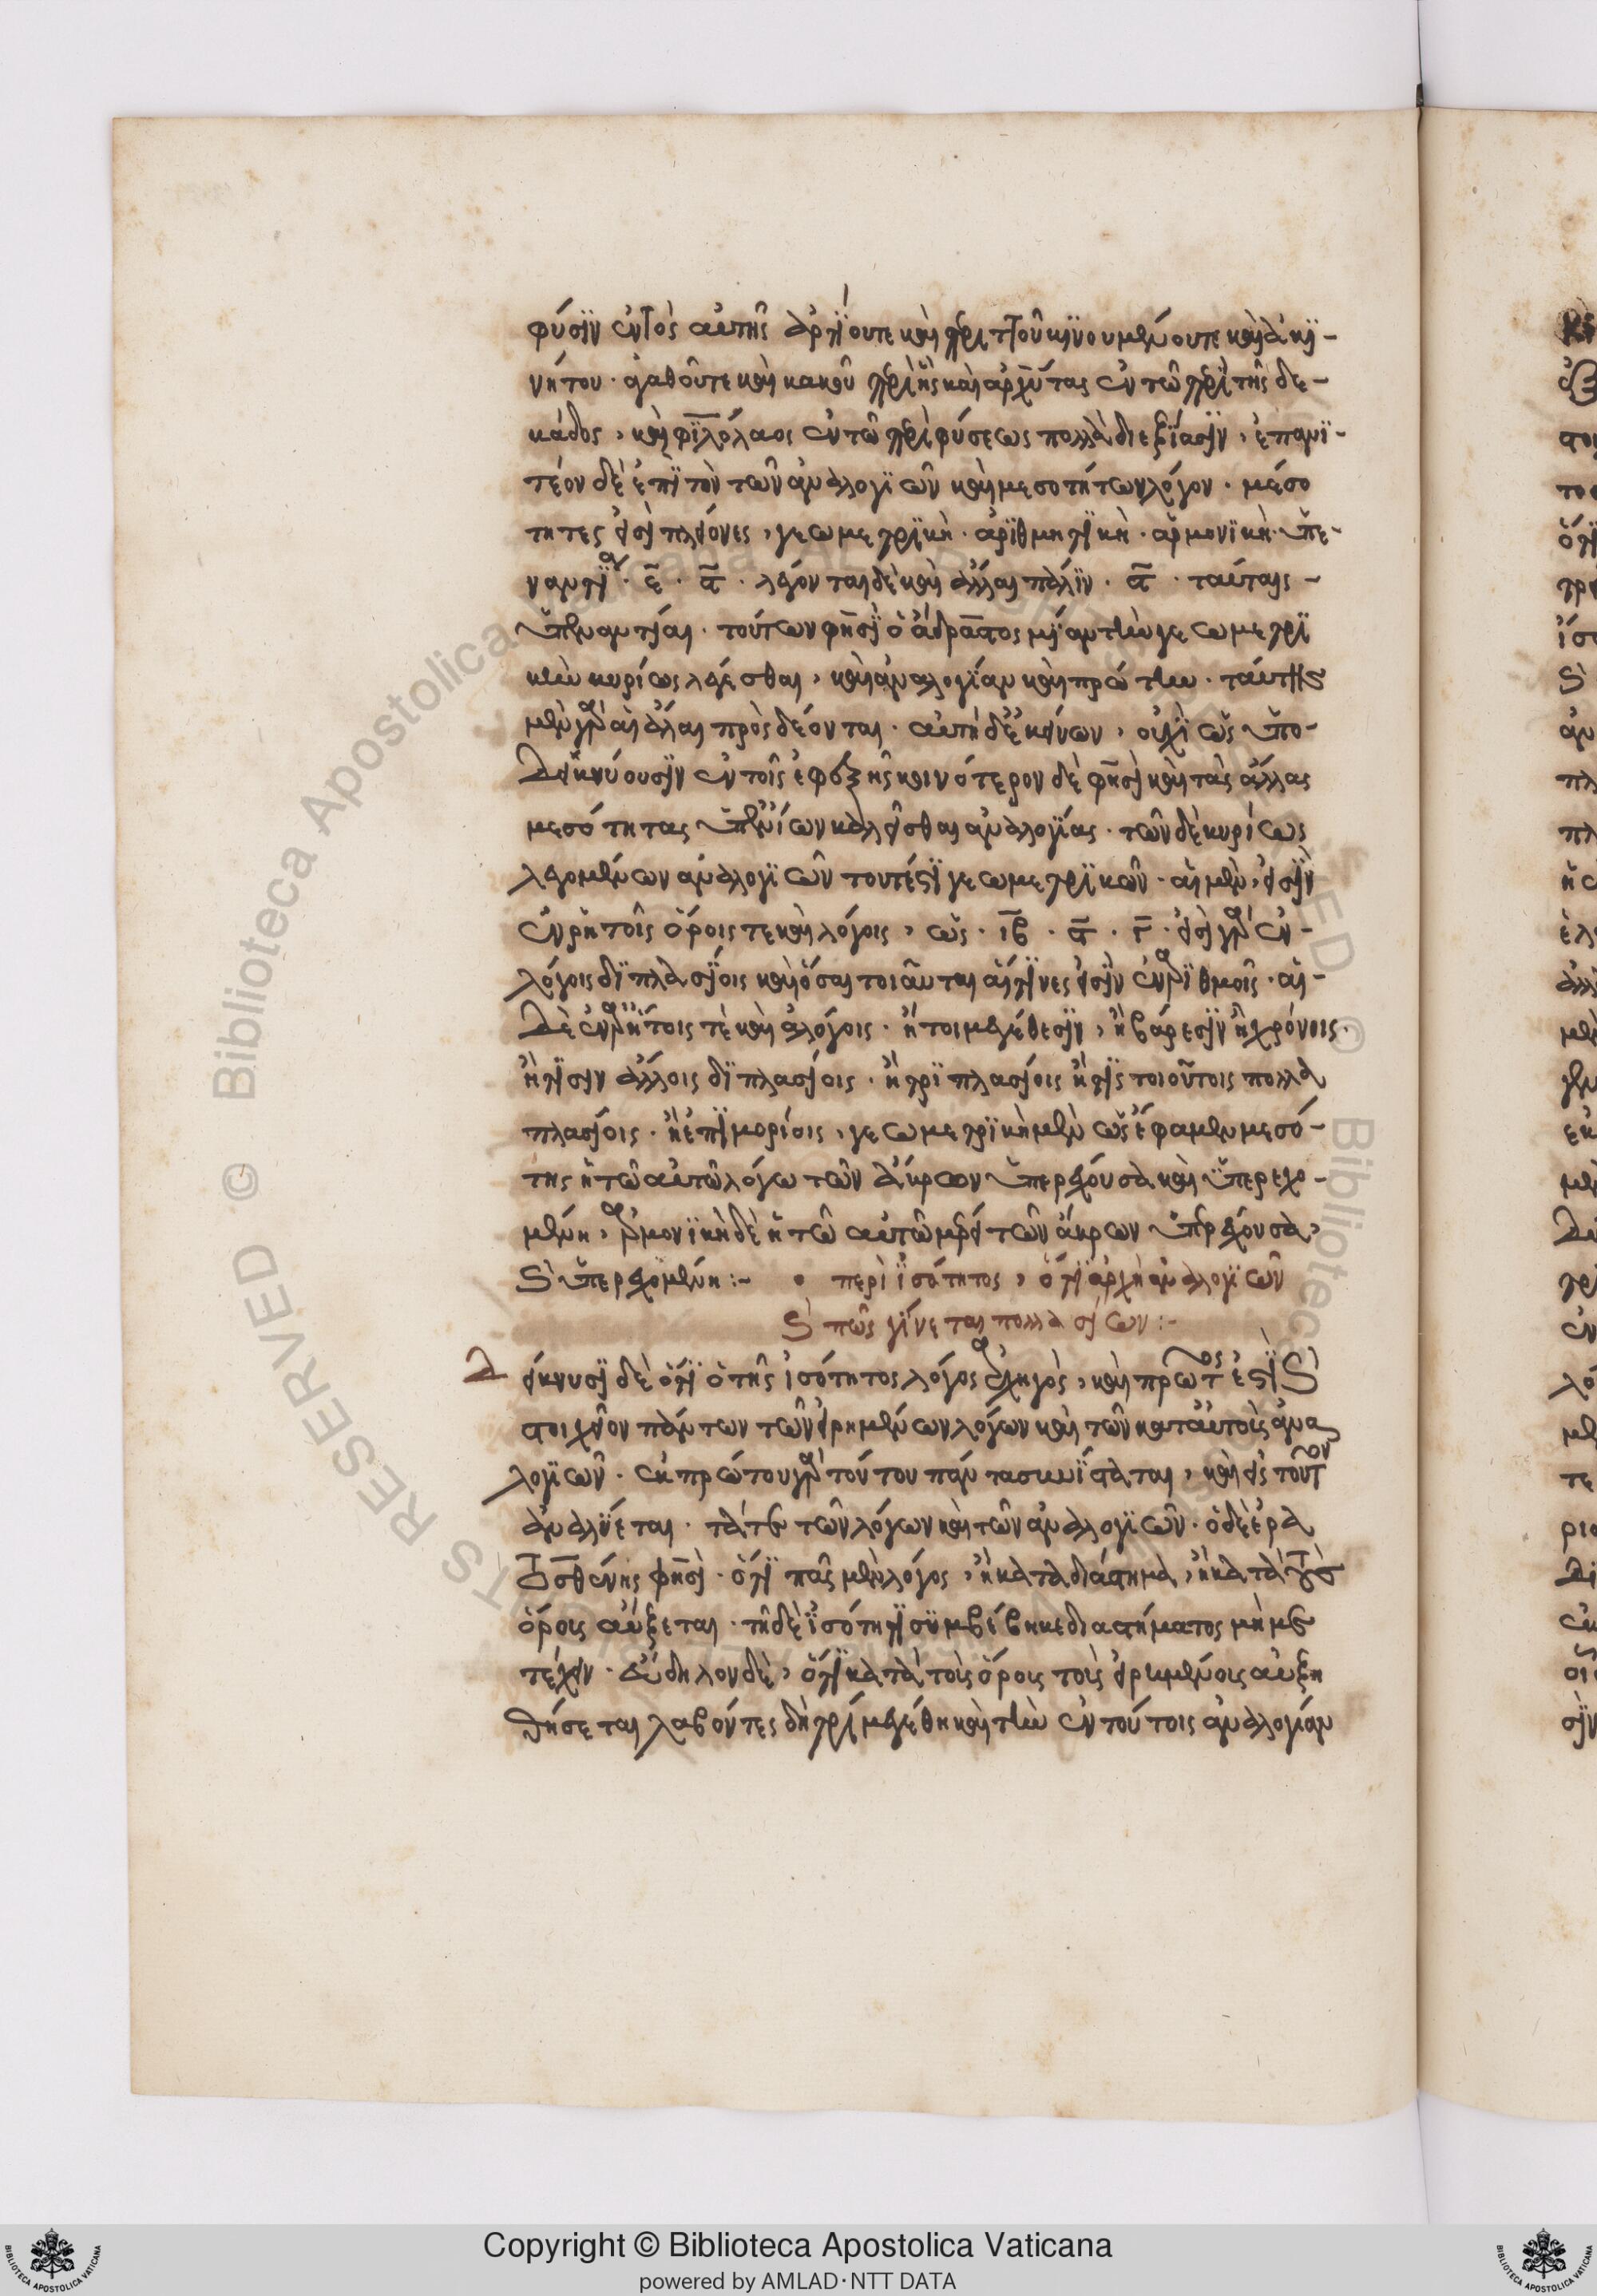 φύσϊν ἐντὸς αὐτῆς ἀρτίου τε καὶ περιττοῦ κϊνουμένου τε καὶ ἀκϊ-
νήτου · ἀγαθοῦ τε καὶ κακοῦ περὶ ἧς καὶ ἀρχύτας ἐν τῶ περὶ τῆς δε-
κάδος, καὶ φϊλόλαος ἐν τῶ περὶ φύσεως πολλὰ διεξίασϊν, ἐπανϊ-
τέον δὲ ἐπὶ τὸν τῶν ἀναλογϊῶν καὶ μεσοτήτων λόγον · μέσο
τητες εἰσὶ πλείονες, γεωμετρϊκὴ · ἀρϊθμητϊκὴ · ἁρμονϊκὴ · ὑπε-
ναντία · ε · ϛ · λέγονται δὲ καὶ ἄλλαι πάλϊν · ϛ · ταύταις -
ὑπεναντίαι · τούτων φησὶ ὁ ἄδραστος μίαν τὴν γεωμετρϊ
κὴν κυρίως λέγεσθαι, καὶ ἀναλογίαν καὶ πρώτην · ταύτης
μὲν γὰρ αἱ ἄλλαι προσδέονται · αὐτὴ δ' ἐκείνων, οὐχὶ ὡς ὑπο-
δεικνύουσϊν ἐν τοῖς ἐφεξῆς κοινότερον δὲ φησὶ καὶ τὰς ἄλλας
μεσότητας ὑπ' ἐνίων καλεῖσθαι ἀναλογίας · τῶν δὲ κυρίως
λεγομένων ἀναλογϊῶν τουτέστϊ γεωμετρϊκῶν · αἱ μὲν, εἰσὶν
ἐν ῥητοῖς ὅροις τε καὶ λόγοις, ὡς · ιβ · ϛ · γ · εἰσὶ γὰρ ἐν -
λόγοις δϊπλασίοις καὶ ὅσαι τοιαῦται αἵτϊνες εἰσὶν ἐν ἀρϊθμοῖς · αἱ -
δὲ ἐν ἀρρήτοις τὲ καὶ ἀλόγοις · ἤτοι μεγέθεσϊν, ἢ βάρεσϊν ἢ χρόνοις ·
ἤ τϊσιν ἄλλοις δϊπλασίοις · ἢ τρϊπλασίοις ἢ τοῖς τοιούτοις πολλα
πλασίοις · ἢ ἐπϊμορίοις, γεωμετρϊκὴ μὲν ὡς ἔφαμεν μεσό-
της ἡ τῶ αὐτῶ λόγω τῶν ἄκρων ὑπερέχουσα καὶ ὑπερεχο-
μένη, ἁρμονϊκὴ δὲ ἡ τῶ αὐτῶ μέρει τῶν ἄκρων ὑπερέχουσα,
καὶ ὑπερεχομένη :- · περὶ ἰσότητος, ὅτϊ ἀρχὴ ἀναλογϊῶν
καὶ πῶς γίνεται πολλασίων :-
Δείκνυσι δὲ ὅτϊ ὁ τῆς ἰσότητος λόγος ἀρχηγὸς, καὶ πρῶτος ἐστὶ καὶ
στοιχεῖον πάντων τῶν εἰρημένων λόγων καὶ τῶν κατ' αὐτοὺς ἀνα
λογϊῶν · ἐκ πρώτου γὰρ τούτου πάντα συνίσταται, καὶ εἰς τοῦτον
ἀναλύεται · τὰ τῶν λόγων καὶ τῶν ἀναλογϊῶν · ὁ δὲ ἐρα
τοσθένης φησὶ · ὅτϊ πᾶς μὲν λόγος, ἢ κατὰ διάστημα, ἢ κατὰ τοὺς
ὅρους αὔξεται · τῆ δὲ ἰσότητϊ συμβέβηκε διαστήματος μὴ με
τέχειν · εὔδηλον δὲ, ὅτϊ κατὰ τοὺς ὅρους τοὺς εἰρημένους αὐξη
θήσεται λαβόντες δὴ τρία μεγέθη καὶ τὴν ἐν τούτοις ἀναλογίαν
Copyright © Biblioteca Apostolica Vaticana
powered by AMLAD·NTT DATA